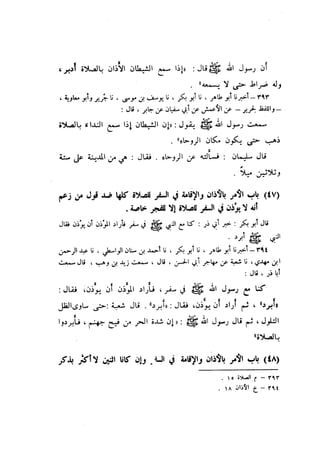 أن رسول الله ﷺ قال : «إذا سمع الشيطان الأذان بالصلاة أدبر ،
وله ضراط حتى لا يسمعه» .
٣٩٣ – أخبرنا أبو طاهر ، نا أبو بكر ، نا يوسف بن موسى ، نا جرير وأبو معاوية ،
– واللفظ لجرير – عن الأعمش عن أبي سفيان عن جابر ، قال :
سمعت رسول الله ﷺ يقول : «إن الشيطان إذا سمع النداء بالصلاة
ذهب حتى يكون مكان الروحاء» .
قال سليمان : فسألته عن الروحاء . فقال : هي من المدينة على ستة
وثلاثين ميلاً .
(٤٧) باب الأمر بالأذان والإقامة في السفر للصلاة كلها ضد قول من زعم
أنه لا يؤذن في السفر للصلاة إلا للفجر خاصة .
قال أبو بكر : خبر أبي ذر : كنا مع النبي ﷺ في سفر فأراد المؤذن أن يؤذن فقال
النبي ﷺ أبرد .
٣٩٤ – أخبرنا أبو طاهر ، نا أبو بكر ، نا أحمد بن سنان الواسطي ، نا عبد الرحمن
ابن مهدي ، نا شعبة عن مهاجر أبي الحسن ، قال ، سمعت زيد بن وهب ، قال سمعت
أبا ذر ، قال :
كنا مع رسول الله ﷺ في سفر، فأراد المؤذن أن يؤذن، فقال :
«أبرد» ، ثم أراد أن يؤذن، فقال : «أبرد» . قال شعبة : حتى ساوى الظل
التلول ، ثم قال رسول الله ﷺ : «إن شدة الحر من فيح جهنم، فأبردوا
بالصلاة»
(٤٨) باب الأمر بالأذان والإقامة في السـ . وإن كانا اثنين لا أكثر بذكر
٣٩٣ – م الصلاة ١٥ .
٣٩٤ – خ الأذان ١٨ .